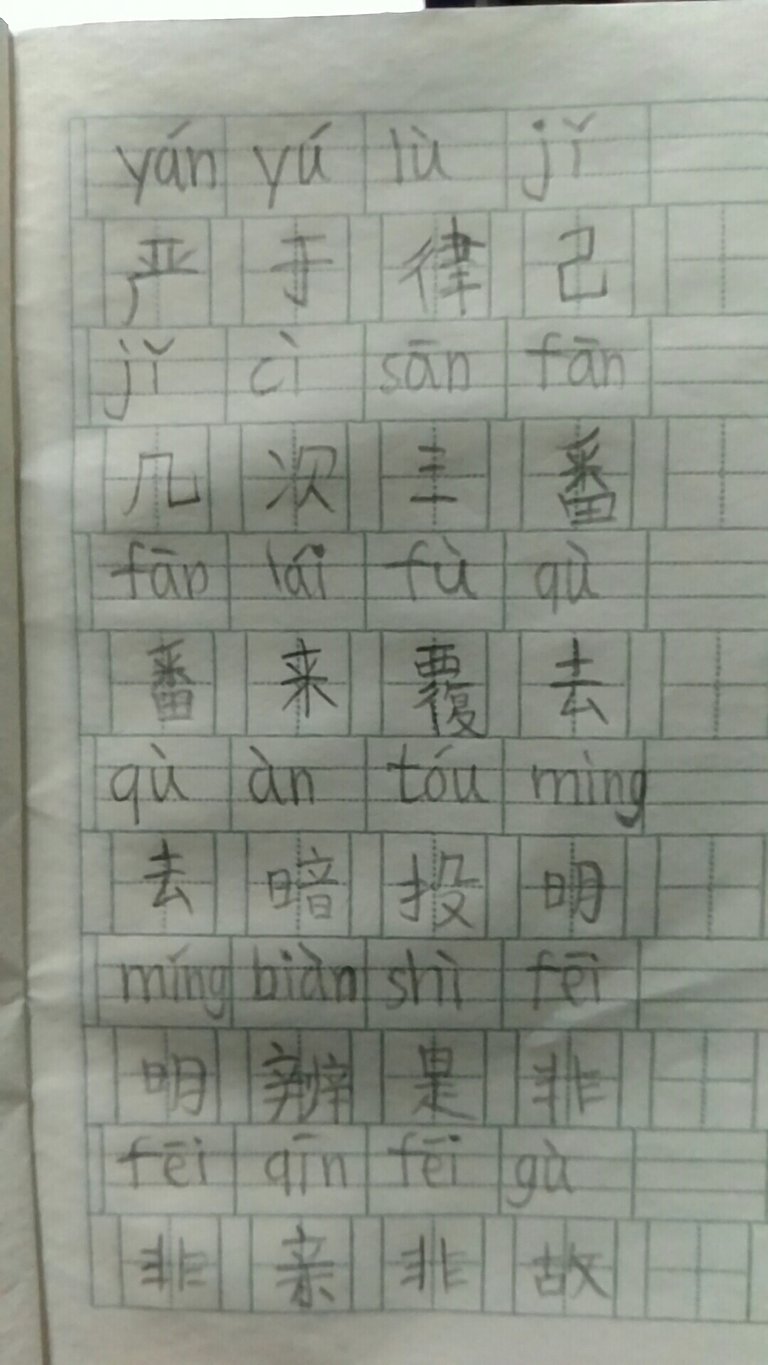 yán yú lù jǐ
严于律己
jǐ cì sān fān
几次三番
fān lái fù qù
番来覆去
qù àn tóu mìng
去暗投明
míng biàn shì fēi
明辨是非
fēi qīn fēi gù
非亲非故